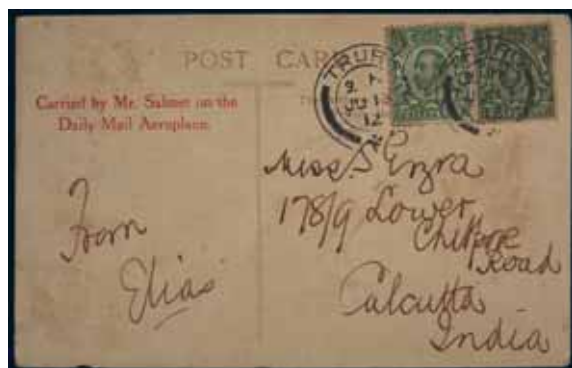 POST CARD
TRURO
JU 1
12
Carried by Mr. Salmet on the
Daily Mail Aeroplane.
From
Elias
Miss S Ezra
178/9 Lower
Chitpore
Road
Calcutta
India